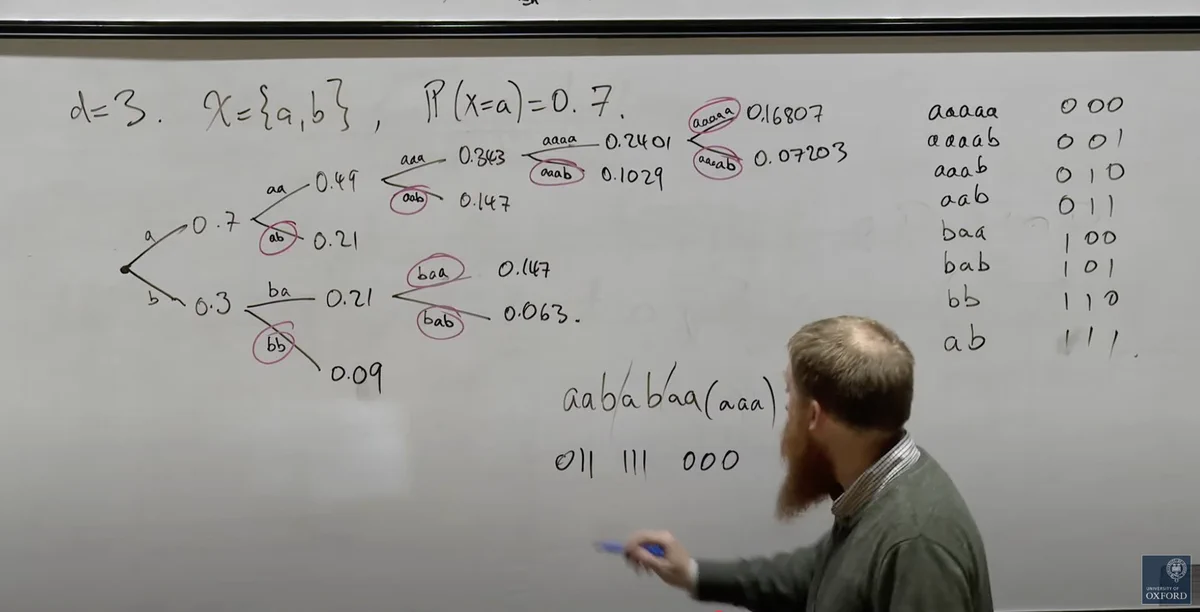 d=3. X={a,b}, P(x=a)=0.7.
a 0.7
b 0.3
aa 0.49
ab 0.21
ba 0.21
bb 0.09
aaa 0.343
aab 0.147
baa 0.147
bab 0.063.
aaaa 0.2401
aaab 0.1029
aaaaa 0.16807
aaaab 0.07203
aab/ab/aa(aaa)
011 111 000
aaaaa 000
aaaab 001
aaab 010
aab 011
baa 100
bab 101
bb 110
ab 111.
UNIVERSITY OF
OXFORD